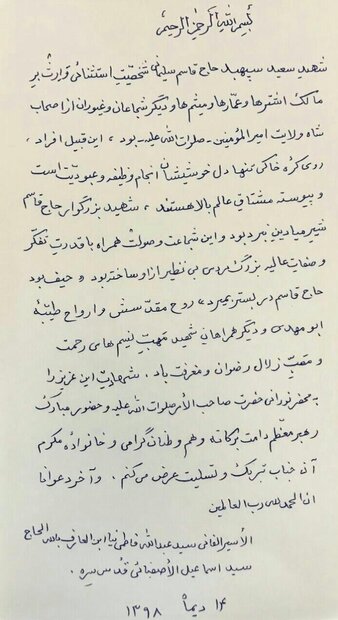 بسم الله الرحمن الرحیم
شهید سعید سپهبد حاج قاسم سلیمانی شخصیّت استثنائی و ارث بر
مالک اشترها و عمّارها و میثم‌ها و دیگر شجاعان و غیوران از اصحاب
شاه ولایت امیرالمؤمنین - صلوات الله علیه - بود، این قبیل افراد،
روی کره خاکی تنها دل خوشیشان انجام وظیفه و عبودیّت است
و پیوسته مشتاق عالم بالا هستند، شهید بزرگوار حاج قاسم
شیر میادین نبرد بود و این شجاعت و صولت همراه با قدرت تفکّر
و صفات عالیه بزرگ مردی بی نظیر از او ساخته بود و حیف بود
حاج قاسم در بستر بمیرد» روح مقدّسش و ارواح طیّبهٔ
ابو مهدی و دیگر همراهان شهید مهبّ نسیم های رحمت
و مصبّ زلال رضوان و مغفرت باد. شهادت این عزیز را
به محضر نورانی حضرت صاحب الأمر صلوات الله علیه و حضور مبارک
رهبر معظّم دامت برکاته و هم وطنان گرامی و خانواده مکرم
آن جناب تبریک و تسلیت عرض می کنم. و آخر دعوانا
ان الحمد لله رب العالمین
الأسیر الفانی سید عبدالله فاطمی نیا ابن العارف بالله الحاج
سید اسماعیل الأصفیائی قدّس سره.
۱۴ دیماه ۱۳۹۸